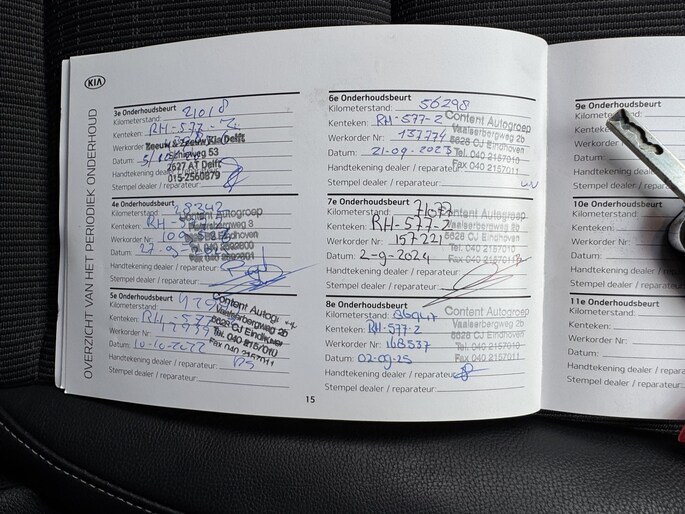 KIA
OVERZICHT VAN HET PERIODIEK ONDERHOUD
3e Onderhoudsbeurt
Kilometerstand: 21018
Kenteken: RH-577-2
Werkorder
Datum:
Handtekening
Stempel dealer / reparateur:
Zeeuw & Zeeuw Kia Delft
Schieweg 53
2627 AT Delft
015-2560879
4e Onderhoudsbeurt
Kilometerstand: 28242
Kenteken: RH-577-2
Werkorder Nr:
Datum: 27-9-
Handtekening dealer / reparateur:
Stempel dealer / reparateur:
Content Autogroep
5e Onderhoudsbeurt
Kilometerstand:
Kenteken: RH-577
Werkorder Nr:
Datum: 10-10-2022
Handtekening dealer / reparateur:
Stempel dealer / reparateur:
Content Autog
Vaalserbergweg 2b
5628 CJ Eindhoven
Tel. 040 2157010
Fax 040 2157011
6e Onderhoudsbeurt
Kilometerstand: 56298
Kenteken: RH-577-2
Werkorder Nr: 137774
Datum: 21-09-2023
Handtekening dealer / reparateur:
Stempel dealer / reparateur:
Content Autogroep
Vaalserbergweg 2b
5628 CJ Eindhoven
Tel. 040 2157010
Fax 040 2157011
7e Onderhoudsbeurt
Kilometerstand: 71077
Kenteken: RH-577-2
Werkorder Nr: 157221
Datum: 2-9-2024
Handtekening dealer / reparateur:
Stempel dealer / reparateur:
Content Autogroep
Vaalserbergweg 2b
5628 CJ Eindhoven
Tel. 040 2157010
Fax 040 2157011
8e Onderhoudsbeurt
Kilometerstand:
Kenteken: RH-577-2
Werkorder Nr: 168537
Datum: 02-09-25
Handtekening dealer / reparateur:
Stempel dealer / reparateur:
Content Autogroep
Vaalserbergweg 2b
5628 CJ Eindhoven
Tel. 040 2157010
Fax 040 2157011
15
9e Onderhoudsbeurt
Kilometerstand:
Kenteken:
Werkorder Nr:
Datum:
Handtekening dealer
Stempel dealer / repara
10e Onderhoudsbeurt
Kilometerstand:
Kenteken:
Werkorder Nr:
Datum:
Handtekening dealer / re
Stempel dealer / reparat
11e Onderhoudsbeurt
Kilometerstand:
Kenteken:
Werkorder Nr:
Datum:
Handtekening dealer / r
Stempel dealer / repara